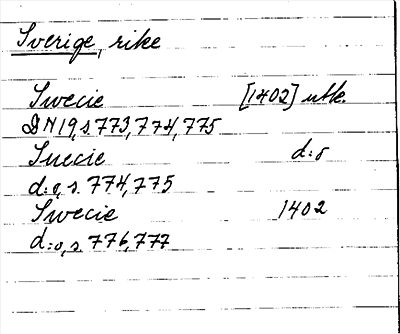 Sverige, rike
Swecie [1402] utk.
DN 19, s. 773, 774, 775
Suecie d:o
d:o, s. 774, 775
Swecie 1402
d:o, s. 776, 777